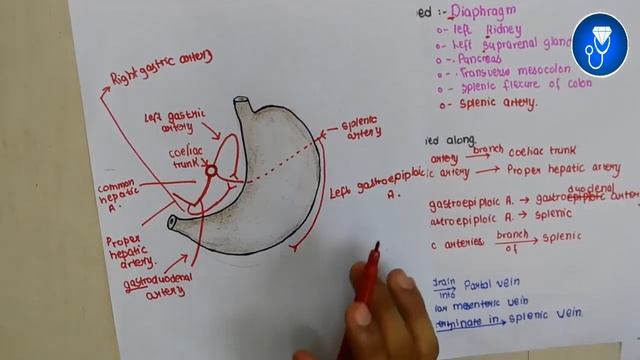 Right gastric artery
Left gastric
artery
coeliac
trunk
common
hepatic
A.
Proper
hepatic
artery.
gastroduodenal
artery
splenic
artery
Left gastroepiploic
A.
ed :- Diaphragm
o- left Kidney
o- Left Suprarenal gland
o-. Pancreas
o-. Transverse mesocolon
o- splenic flexure of colon
o- splenic artery.
ied along
artery branch → coeliac trunk
ic artery → Proper hepatic artery
duodenal
gastroepiploic A. → gastroepiploic artery
astroepiploic A. → splenic
c arteries branch of → splenic
drain into Portal vein
ior mesenteric vein
erminate in → splenic vein.